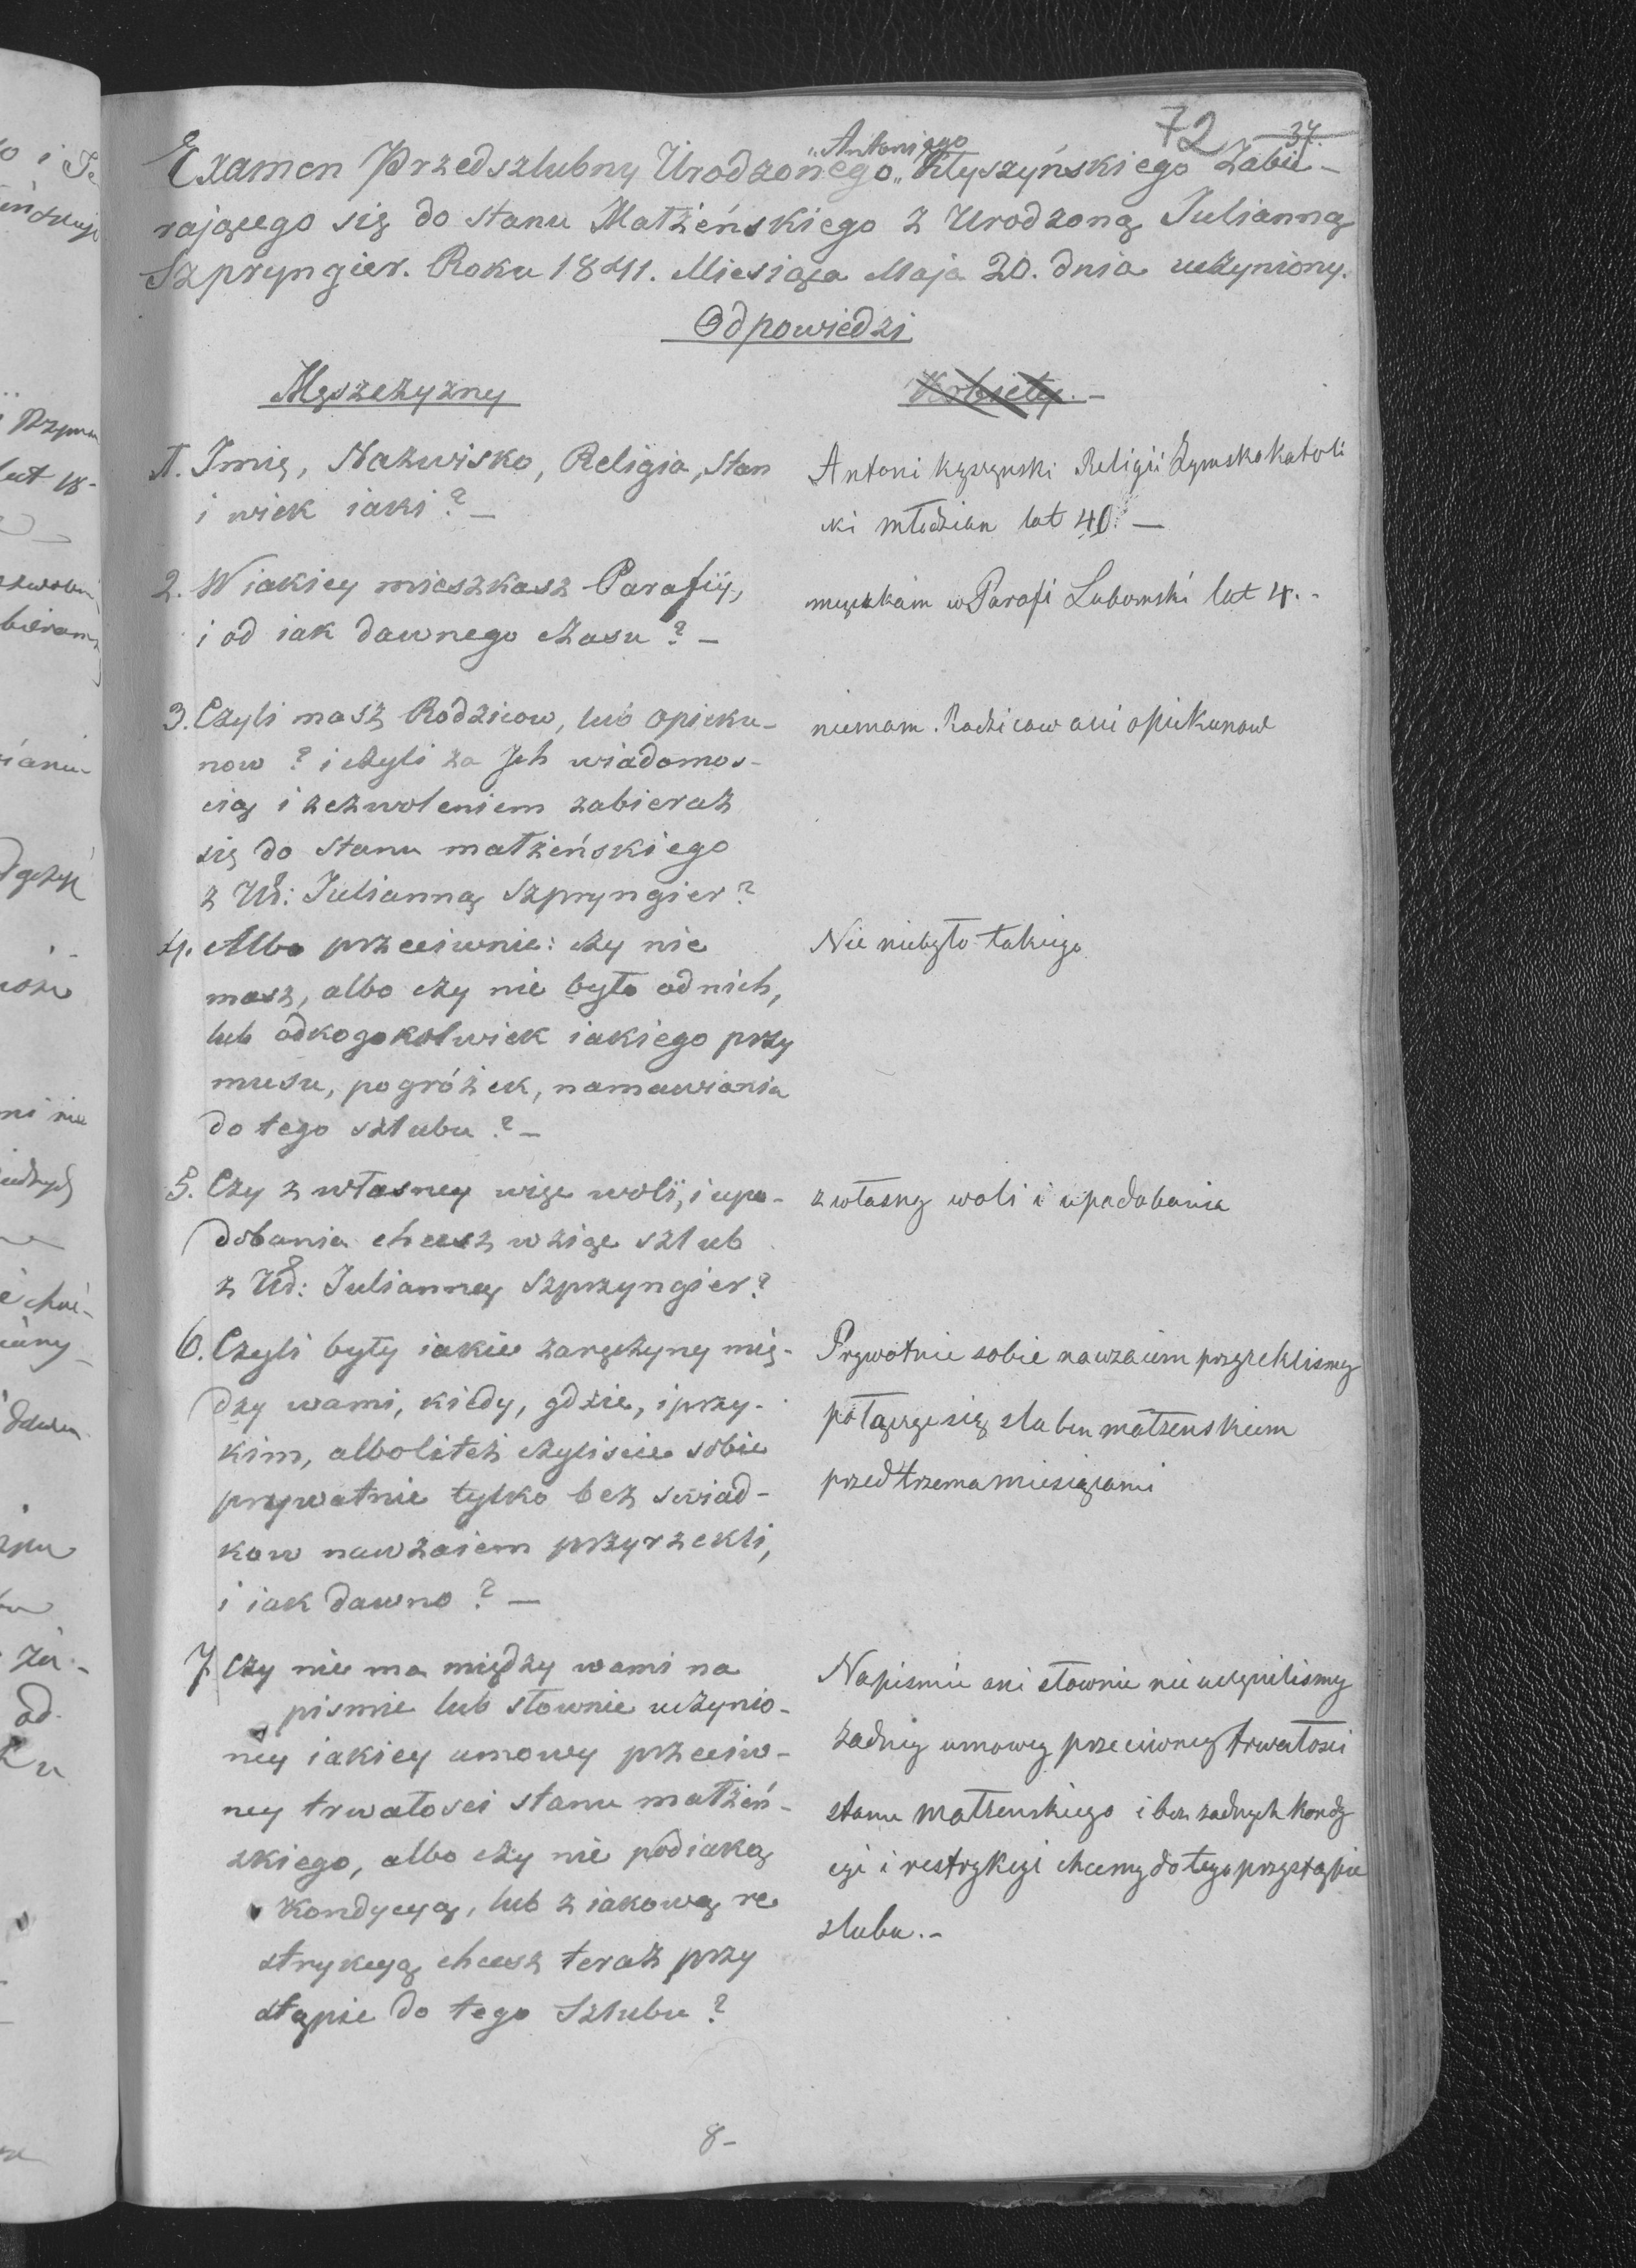 72 37.
Examen Przedszlubny Urodzonego „Antoniego„ Kłyszyńskiego Zabie-
rającego się do stanu Małżeńskiego z Urodzoną Julianną
Szpryngier. Roku 1841. Miesiąca Maja 20. dnia uczyniony.
Odpowiedzi
Męszczyzny
Kobiety. -
1. Imię, Nazwisko, Religia, stan
i wiek iaki? -
Antoni Religii Rzymskokatoli
cki młodzian lat 40. -
2. W iakiey mieszkasz Parafiÿ,
i od iak dawnego czasu? -
mięszkam w Parafi Lubomski lat 4. -
3. Czyli masz Rodzicow, lub opieku-
now? i czyli za Jch wiadomos-
cią i zezwoleniem zabierasz
się do stanu małżeńskiego
z Ur: Julianną Szpryngier?
niemam. Rodzicow ani opiekunow
4. Albo przeciwnie: czy nie
masz, albo czy nie było od nich,
lub odkogokolwiek iakiego przy
musu, pogróżek, namawiania
do tego szlubu? -
Nie niebyło takiego
5. Czy z własney więc woli, i upo-
dobania chcesz wziąć szlub
z Ur: Julianną Szpryngier?
z własney woli i upodobania
6. Czyli były iakie zaręczyny mię-
dzy wami, kiedy, gdzie, i przy-
kim, albolitéż czyliscie sobie
prywatnie tylko bez swiad-
kow nawzaiem przyrzekli,
i iak dawno? -
Prywatnie sobie nawzaiem przyrzeklismy
połączyć się slubem małżenskiem
przed trzema miesiącami
7. Czy nie ma między wami na
pismie lub słownie uczynio-
ney iakiey umowy przeciw-
ney trwałosci stanu małżeń-
skiego, albo czy nie podiaką
kondycyą, lub z iakową re
strykcyą chcesz teraz przy
stąpić do tego Szlubu?
Napismie ani słownie nie uczynilismy
żadney umowy przeciwney trwałosci
stanu małżenskiego i bez żadnych kondy
cyi i restrykcyi chcemy do tego przystąpić
slubu. -
8 -